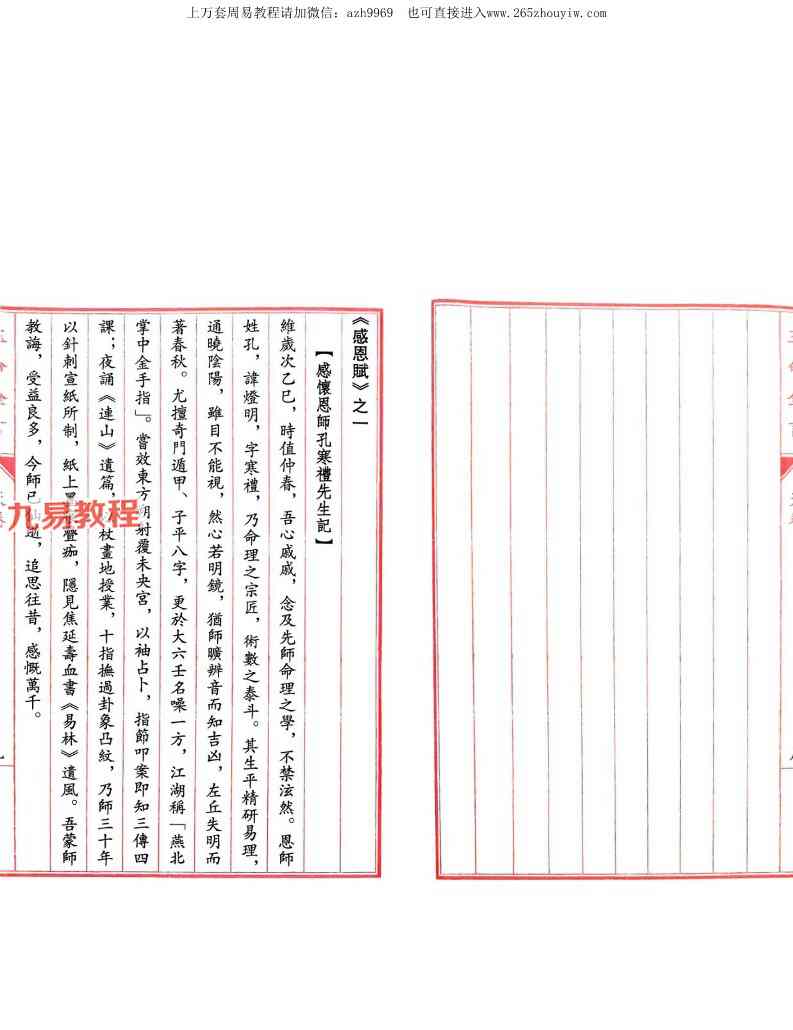 上万套周易教程请加微信：azh9969 也可直接进入www.265zhouyiw.com
《感恩賦》之一
【感懷恩師孔寒禮先生記】
維歲次乙巳，時值仲春，吾心戚戚，念及先師命理之學，不禁泫然。恩師
姓孔，諱燈明，字寒禮，乃命理之宗匠，術數之泰斗。其生平精研易理，
通曉陰陽，雖目不能視，然心若明鏡，猶師曠辨音而知吉凶，左丘失明而
著春秋。尤擅奇門遁甲、子平八字，更於大六壬名噪一方，江湖稱「燕北
掌中金手指」。嘗效東方朔射覆未央宮，以袖占卜，指節叩案即知三傳四
課；夜誦《連山》遺篇，杖畫地授業，十指撫過卦象凸紋，乃師三十年
以針刺宣紙所制，紙上疊痂，隱見焦延壽血書《易林》遺風。吾蒙師
教誨，受益良多，今師已逝，追思往昔，感慨萬千。
九易教程